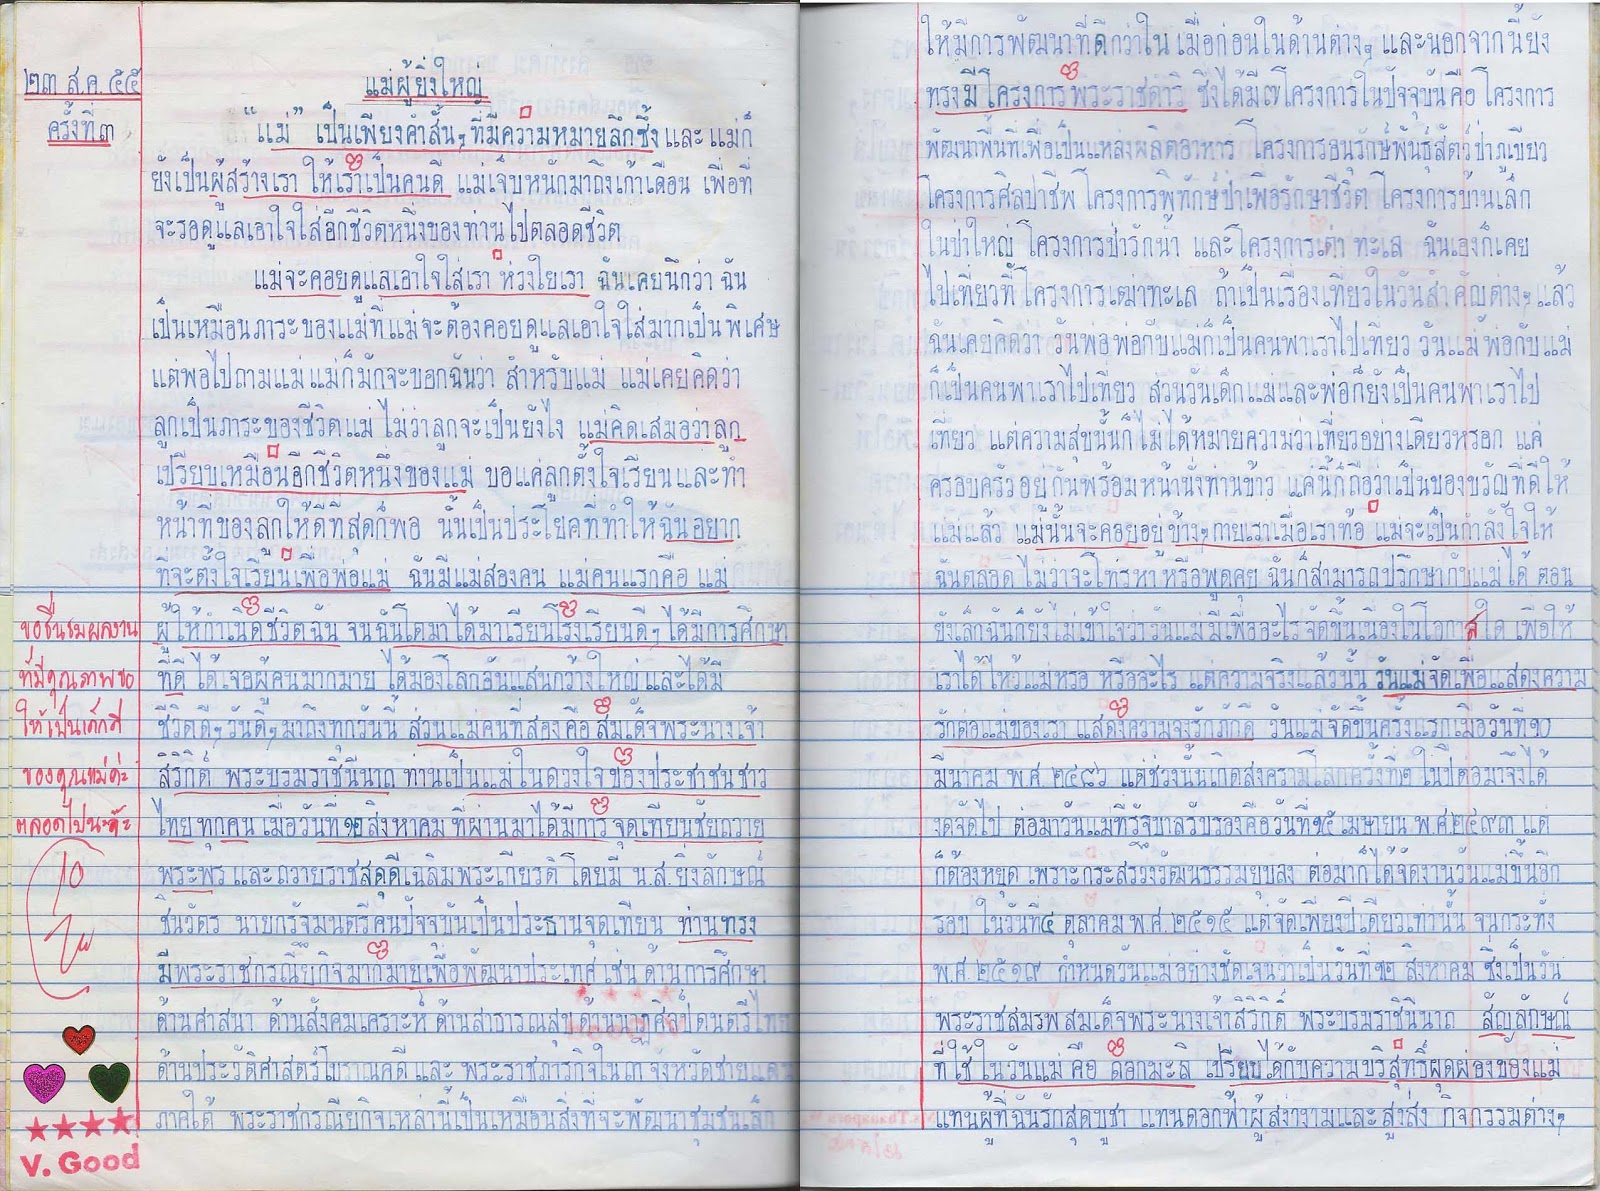 ๒๓ ส.ค. ๕๕
ครั้งที่ ๓
แม่ผู้ยิ่งใหญ่
"แม่" เป็นเพียงคำสั้นๆ ที่มีความหมายลึกซึ้ง และ แม่ก็
ยังเป็นผู้สร้างเรา ให้เราเป็นคนดี แม่เจ็บหนักมาถึงเก้าเดือน เพื่อที่
จะรอดูแลเอาใจใส่อีกชีวิตหนึ่งของท่านไปตลอดชีวิต
แม่จะคอยดูแลเอาใจใส่เรา ห่วงใยเรา ฉันเคยนึกว่า ฉัน
เป็นเหมือนภาระของแม่ที่แม่จะต้องคอยดูแลเอาใจใส่มากเป็นพิเศษ
แต่พอไปถามแม่ แม่ก็มักจะบอกฉันว่า สำหรับแม่ แม่เคยคิดว่า
ลูกเป็นภาระของชีวิตแม่ ไม่ว่าลูกจะเป็นยังไง แม่คิดเสมอว่าลูก
เปรียบเหมือนอีกชีวิตหนึ่งของแม่ ขอแค่ลูกตั้งใจเรียนและทำ
หน้าที่ของลูกให้ดีที่สุดก็พอ นั้นเป็นประโยคที่ทำให้ฉันอยาก
ที่จะตั้งใจเรียนเพื่อพ่อแม่ ฉันมีแม่สองคน แม่คนแรกคือ แม่
ผู้ให้กำเนิดชีวิตฉัน จนฉันโตมาได้มาเรียนโรงเรียนดีๆ ได้มีการศึกษา
ที่ดี ได้เจอผู้คนมากมาย ได้มองโลกอันแสนกว้างใหญ่ และได้มี
ชีวิตดีๆ วันดีๆ มาถึงทุกวันนี้ ส่วนแม่คนที่สองคือ สมเด็จพระนางเจ้า
สิริกิติ์ พระบรมราชินีนาถ ท่านเป็นแม่ในดวงใจของประชาชนชาว
ไทยทุกคน เมื่อวันที่ ๑๒ สิงหาคม ที่ผ่านมาได้มีการ จุดเทียนชัยถวาย
พระพร และถวายราชสดุดีเฉลิมพระเกียรติ โดยมี น.ส.ยิ่งลักษณ์
ชินวัตร นายกรัฐมนตรีคนปัจจุบันเป็นประธานจุดเทียน ท่านทรง
มีพระราชกรณียกิจมากมายเพื่อพัฒนาประเทศ เช่น ด้านการศึกษา
ด้านศาสนา ด้านสังคมเคราะห์ ด้านสาธารณสุข ด้านนาฏศิลป์ดนตรีไทย
ด้านประวัติศาสตร์โบราณคดี และ พระราชภารกิจใน ๓ จังหวัดชายแดน
ภาคใต้ พระราชกรณียกิจเหล่านี้เป็นเหมือนสิ่งที่จะพัฒนาชุมชนเล็ก
ขอชื่นชมผลงาน
ที่มีคุณภาพขอ
ให้เป็นเด็กดี
ของคุณแม่ค่ะ
ตลอดไปนะคะ
10
V. Good
ให้มีการพัฒนาที่ดีกว่าใน เมื่อก่อนในด้านต่างๆ และนอกจากนี้ยัง
ทรงมีโครงการพระราชดำริ ซึ่งได้มี ๗ โครงการในปัจจุบันคือ โครงการ
พัฒนาพื้นที่เพื่อเป็นแหล่งผลิตอาหาร โครงการอนุรักษ์พันธุ์สัตว์ป่าภูเขียว
โครงการศิลปาชีพ โครงการพิทักษ์ป่าเพื่อรักษาชีวิต โครงการบ้านเล็ก
ในป่าใหญ่ โครงการป่ารักน้ำ และโครงการเต่า ทะเล ฉันเองก็เคย
ไปเที่ยวที่ โครงการเต่าทะเล ถ้าเป็นเรื่องเที่ยวในวันสำคัญต่างๆ แล้ว
ฉันเคยคิดว่า วันพ่อ พ่อกับแม่ก็เป็นคนพาเราไปเที่ยว วันแม่ พ่อกับแม่
ก็เป็นคนพาเราไปเที่ยว ส่วนวันเด็กแม่และพ่อก็ยังเป็นคนพาเราไป
เที่ยว แต่ความสุขนั้นก็ไม่ได้หมายความว่าเที่ยวอย่างเดียวหรอก แค่
ครอบครัวอยู่กันพร้อมหน้านั่งทานข้าว แค่นี้ก็ถือว่าเป็นของขวัญที่ดีให้
แม่แล้ว แม่นั้นจะคอยอยู่ข้างๆกายเราเมื่อเราท้อ แม่จะเป็นกำลังใจให้
ฉันตลอด ไม่ว่าจะโทรหา หรือพูดคุย ฉันก็สามารถปรึกษากับแม่ได้ ตอน
ยังเล็กฉันก็ยังไม่เข้าใจว่าวันแม่มีเพื่ออะไร จัดขึ้นเนื่องในโอกาสใด เพื่อให้
เราได้ไหว้แม่หรอ หรืออะไร แต่ความจริงแล้วนั้น วันแม่จัดเพื่อแสดงความ
รักต่อแม่ของเรา แสดงความจงรักภักดี วันแม่จัดขึ้นครั้งแรกเมื่อวันที่ ๑๐
มีนาคม พ.ศ. ๒๔๘๖ แต่ช่วงนั้นเกิดสงครามโลกครั้งที่ ๒ ในปีต่อมาจึงได้
งดจัดไป ต่อมาวันแม่ที่รัฐบาลรับรองคือวันที่ ๑๕ เมษายน พ.ศ. ๒๔๙๓ แต่
ก็ต้องหยุด เพราะกระสรวงวัฒนธรรมยุบลง ต่อมาก็ได้จัดงานวันแม่ขึ้นอีก
รอบ ในวันที่ ๔ ตุลาคม พ.ศ. ๒๕๑๕ แต่จัดเพียงปีเดียวเท่านั้น จนกระทั่ง
พ.ศ. ๒๕๑๙ กำหนดวันแม่อย่างชัดเจนว่าเป็นวันที่ ๑๒ สิงหาคม ซึ่งเป็นวัน
พระราชสมรพ สมเด็จพระนางเจ้าสิริกิติ์ พระบรมราชินีนาถ สัญลักษณ์
ที่ใช้ในวันแม่ คือ ดอกมะลิ เปรียบได้กับความบริสุทธิ์ผุดผ่องของแม่
แทนผู้ที่ฉันรักสุดบูชา แทนดอกฟ้าผู้สง่างามและสูงส่ง กิจกรรมต่างๆ